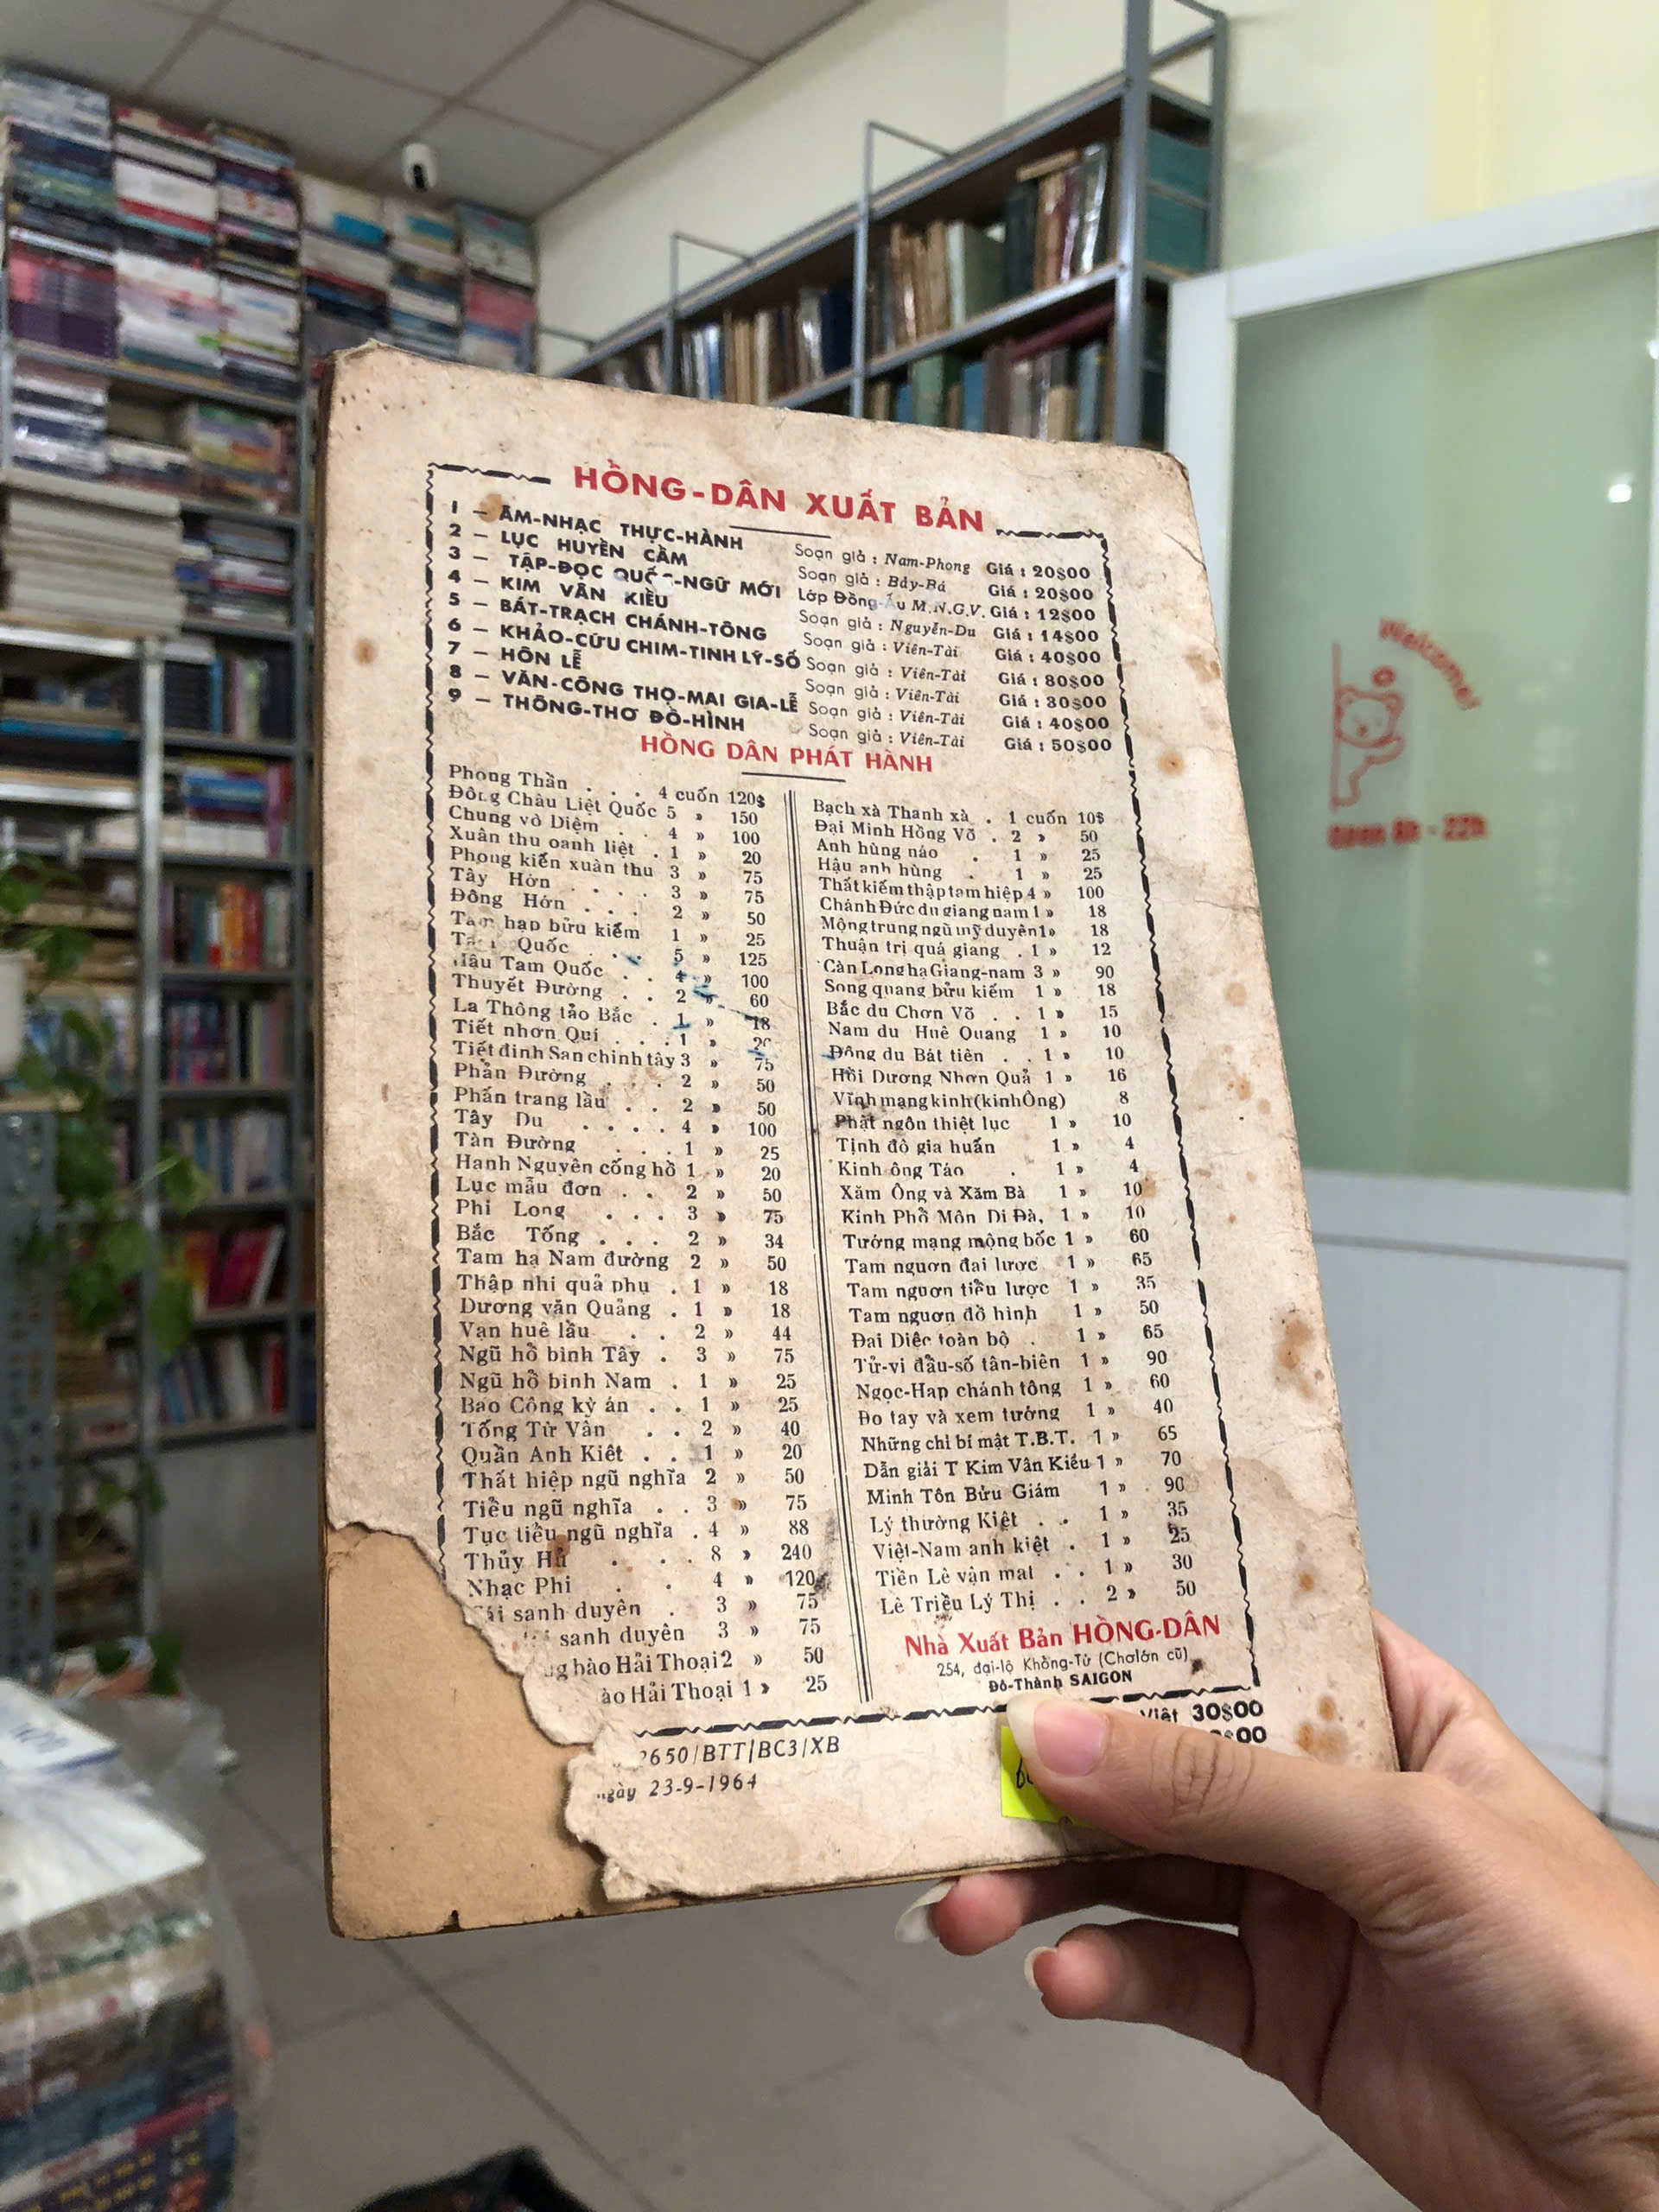 HỒNG-DÂN XUẤT BẢN
1 — ÂM-NHẠC THỰC-HÀNH Soạn giả : Nam-Phong Giá : 20$00
2 — LỤC HUYỀN CẦM Soạn giả : Bảy-Bá Giá : 20$00
3 — TẬP-ĐỌC QUỐC-NGỮ MỚI Lớp Đồng-Ấu M.N.G.V. Giá : 12$00
4 — KIM VÂN KIỀU Soạn giả : Nguyễn-Du Giá : 14$00
5 — BÁT-TRẠCH CHÁNH-TÔNG Soạn giả : Viên-Tài Giá : 40$00
6 — KHẢO-CỨU CHIM-TINH LÝ-SỐ Soạn giả : Viên-Tài Giá : 80$00
7 — HÔN LỄ Soạn giả : Viên-Tài Giá : 30$00
8 — VĂN-CÔNG THỌ-MAI GIA-LỄ Soạn giả : Viên-Tài Giá : 40$00
9 — THÔNG-THƠ ĐỒ-HÌNH Soạn giả : Viên-Tài Giá : 50$00
HỒNG DÂN PHÁT HÀNH
Phong Thần . . . 4 cuốn 120$
Đông Châu Liệt Quốc 5 » 150
Chung vô Diệm . . 4 » 100
Xuân thu oanh liệt . 1 » 20
Phong kiến xuân thu 3 » 75
Tây Hớn . . . . 3 » 75
Đông Hớn . . . 2 » 50
Tam hạp bửu kiếm 1 » 25
Tam Quốc . . 5 » 125
Hậu Tam Quốc . . 4 » 100
Thuyết Đường . . 2 » 60
La Thông tảo Bắc . 1 » 18
Tiết nhơn Quí . . . 1 »
Tiết đinh San chinh tây 3 » 75
Phản Đường . . . 2 » 50
Phấn trang lầu . . 2 » 50
Tây Du . . . . 4 » 100
Tàn Đường . . . 1 » 25
Hanh Nguyên cống hồ 1 » 20
Lục mẫu đơn . . 2 » 50
Phi Long . . . 3 » 75
Bắc Tống . . . 2 » 34
Tam hạ Nam đường 2 » 50
Thập nhi quả phụ . 1 » 18
Dương văn Quảng . 1 » 18
Vạn huê lầu . . 2 » 44
Ngũ hổ bình Tây . 3 » 75
Ngũ hổ bình Nam . 1 » 25
Bao Công kỳ án . . 1 » 25
Tống Từ Vân . . 2 » 40
Quần Anh Kiệt . . 1 » 20
Thất hiệp ngũ nghĩa 2 » 50
Tiểu ngũ nghĩa . . 3 » 75
Tục tiểu ngũ nghĩa . 4 » 88
Thủy Hử . . . 8 » 240
Nhạc Phi . . 4 » 120
Tái sanh duyên . 3 » 75
sanh duyên 3 » 75
bào Hải Thoại 2 » 50
Hải Thoại 1 » 25
Bạch xà Thanh xà . 1 cuốn 10$
Đại Minh Hồng Võ . 2 » 50
Anh hùng náo . 1 » 25
Hậu anh hùng . 1 » 25
Thất kiếm thập tam hiệp 4 » 100
Chánh Đức du giang nam 1 » 18
Mộng trung ngũ mỹ duyên 1 » 18
Thuận trị quá giang . 1 » 12
Càn Long hạ Giang-nam 3 » 90
Song quang bửu kiếm 1 » 18
Bắc du Chơn Võ . . 1 » 15
Nam du Huê Quang 1 » 10
Đông du Bát tiên . . 1 » 10
Hồi Dương Nhơn Quả 1 » 16
Vĩnh mạng kinh (kinh Ông) 8
Phật ngôn thiệt lục 1 » 10
Tịnh độ gia huấn 1 » 4
Kinh ông Táo . 1 » 4
Xăm Ông và Xăm Bà 1 » 10
Kinh Phổ Môn Di Đà, 1 » 10
Tướng mạng mộng bốc 1 » 60
Tam nguơn đại lược 1 » 65
Tam nguơn tiểu lược 1 » 35
Tam nguơn đồ hình 1 » 50
Đại Diệc toàn bộ . 1 » 65
Tử-vi đẩu-số tân-biên 1 » 90
Ngọc-Hạp chánh tông 1 » 60
Đo tay và xem tướng 1 » 40
Những chỉ bí mật T.B.T. 1 » 65
Dẫn giải T Kim Vân Kiều 1 » 70
Minh Tôn Bửu Giám 1 » 90
Lý thường Kiệt . . 1 » 35
Việt-Nam anh kiệt . 1 » 25
Tiền Lê vận mạt . . 1 » 30
Lê Triều Lý Thị . . 2 » 50
Nhà Xuất Bản HỒNG-DÂN
254, đại-lộ Khổng-Tử (Chợlớn cũ)
Đô-Thành SAIGON
Việt 30$00
2650/BTT/BC3/XB
ngày 23-9-1964
Welcome!
Open 8h - 22h